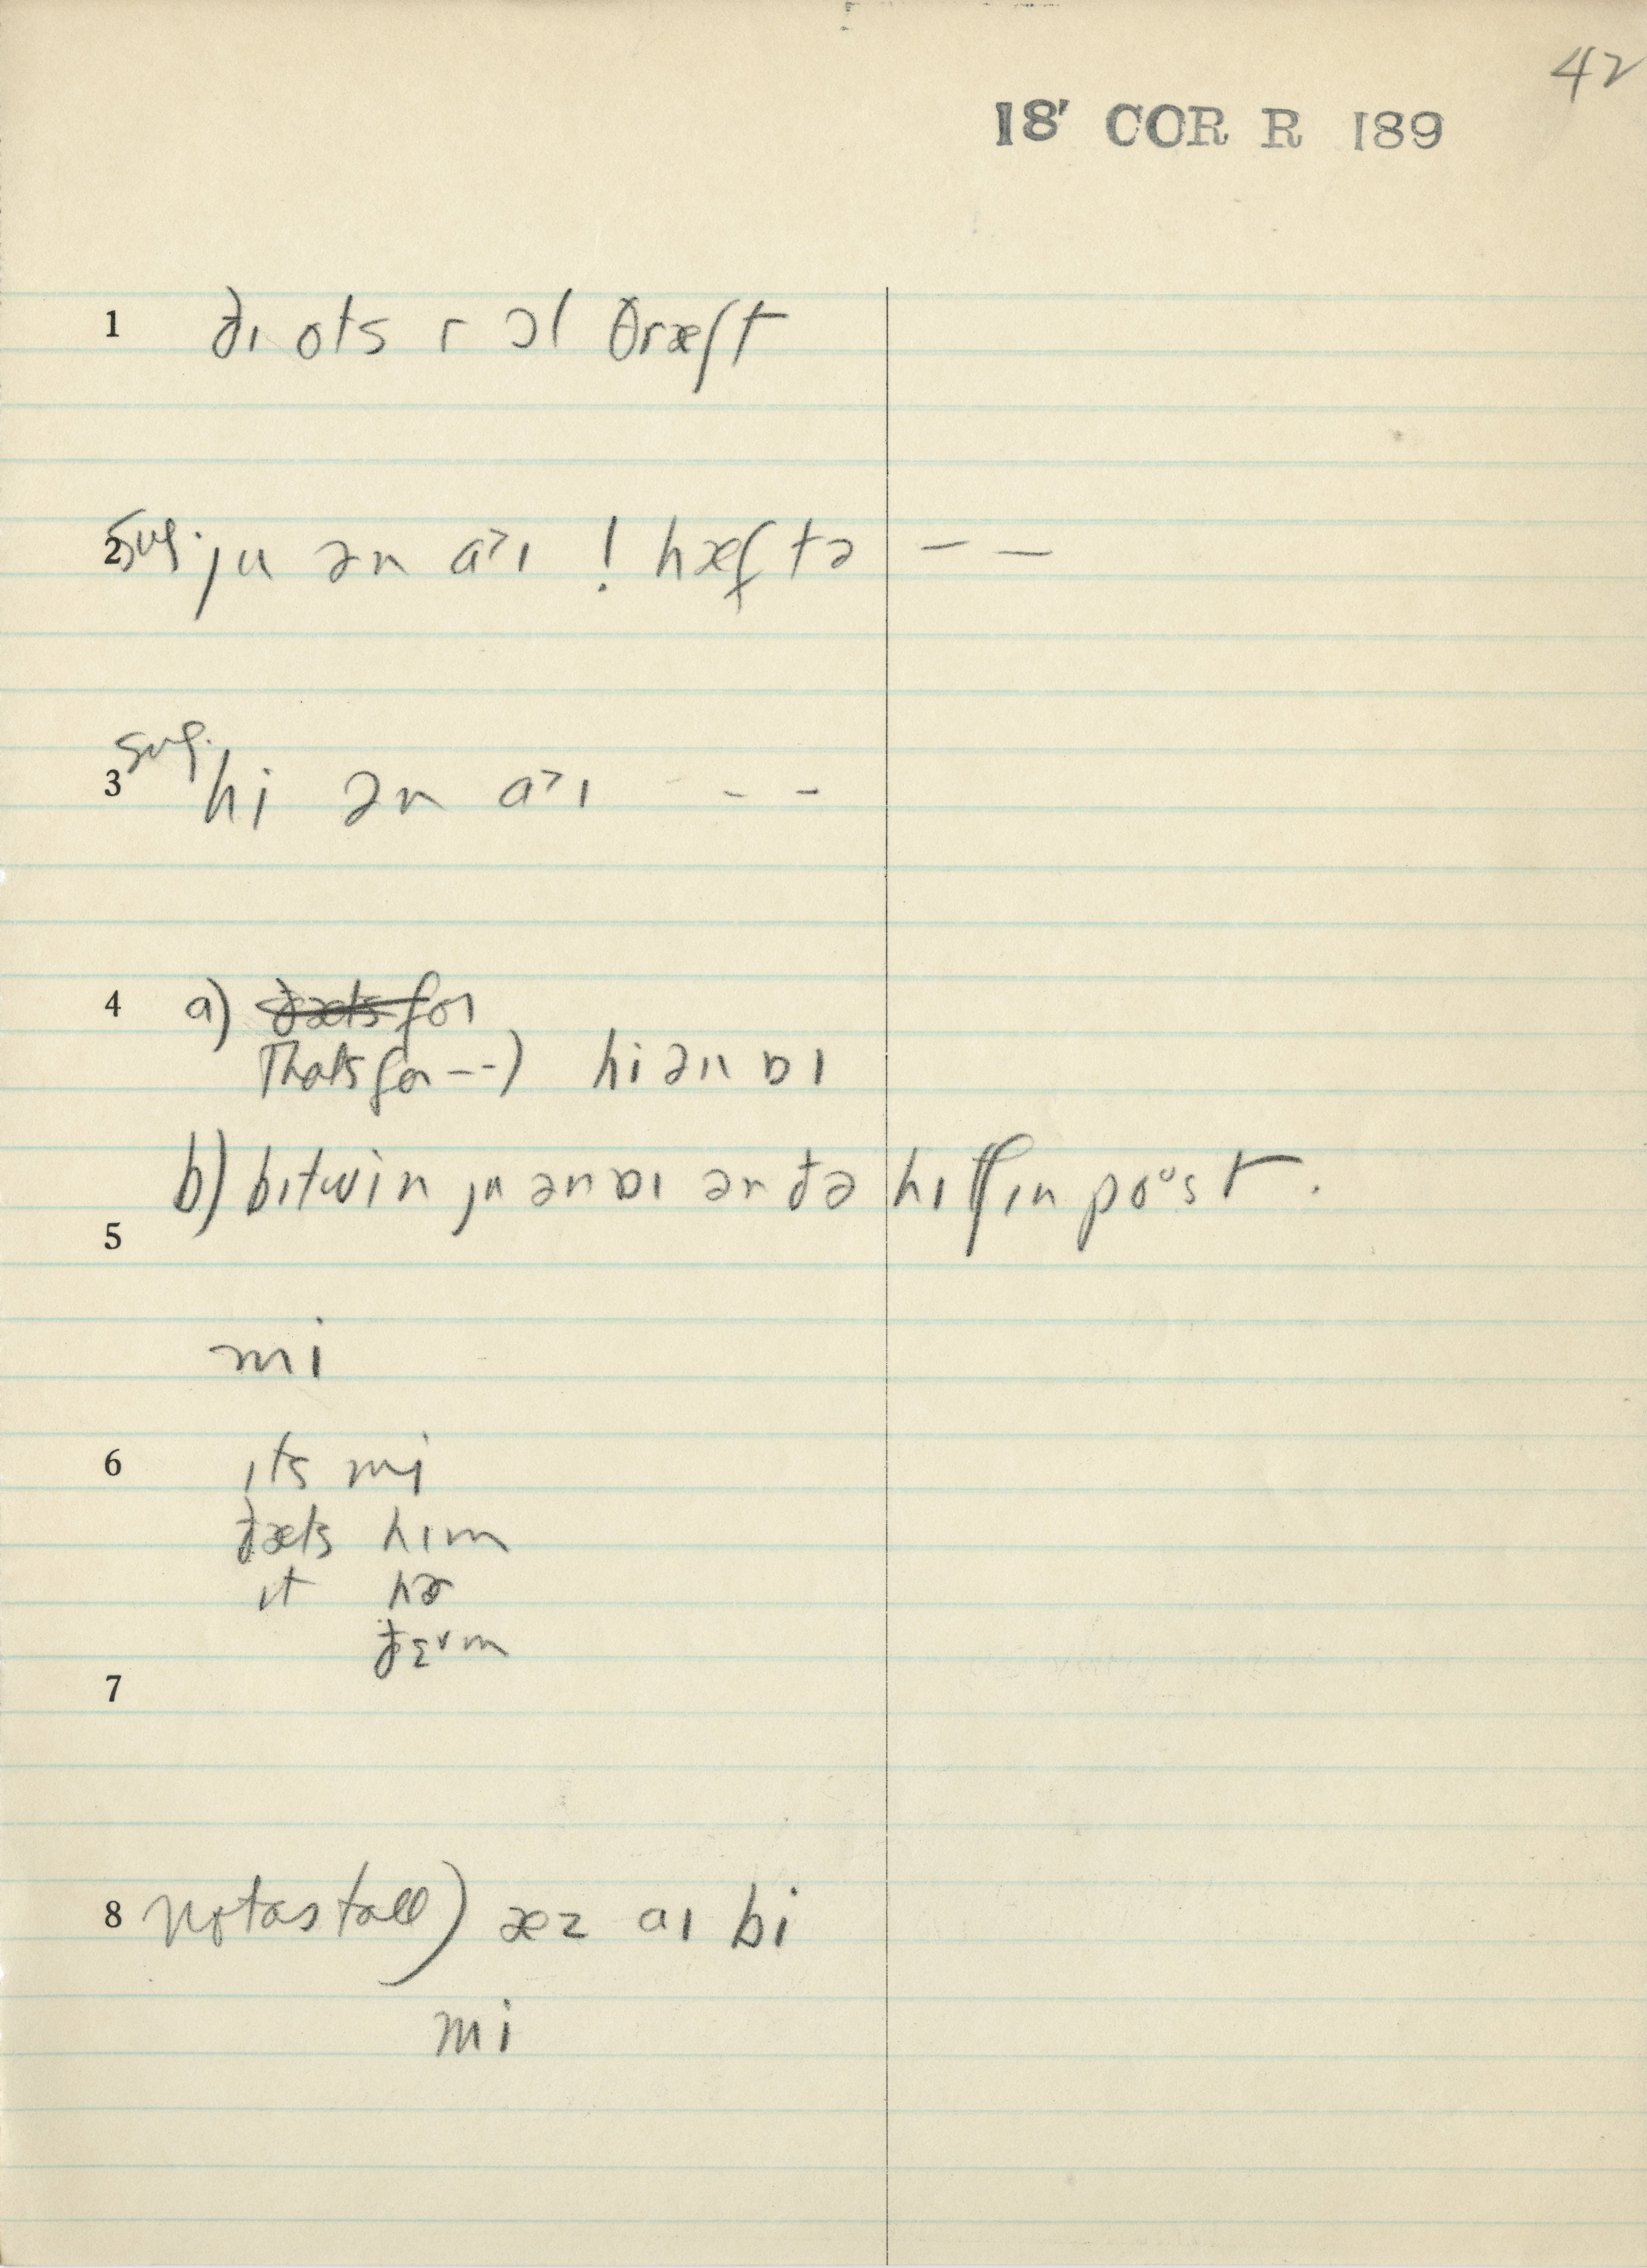 42
18' COR R 189
1 ðɪ ots r ɔl θræʃt
2 sug. ju ən a˃ɪ ! hæf tə — —
3 sug. hi ən a˃ɪ - -
4 a) ðæts for
Thats for --) hi ən ɒɪ
b) bɪtwin ju ən ɒɪ ən ðə hɪtʃɪn poᵘst.
5
mi
6 ɪts mi
ðæts hɪm
ɪt hɚ
ðɛᵛm
7
8 not as tall) æz aɪ bi
mi